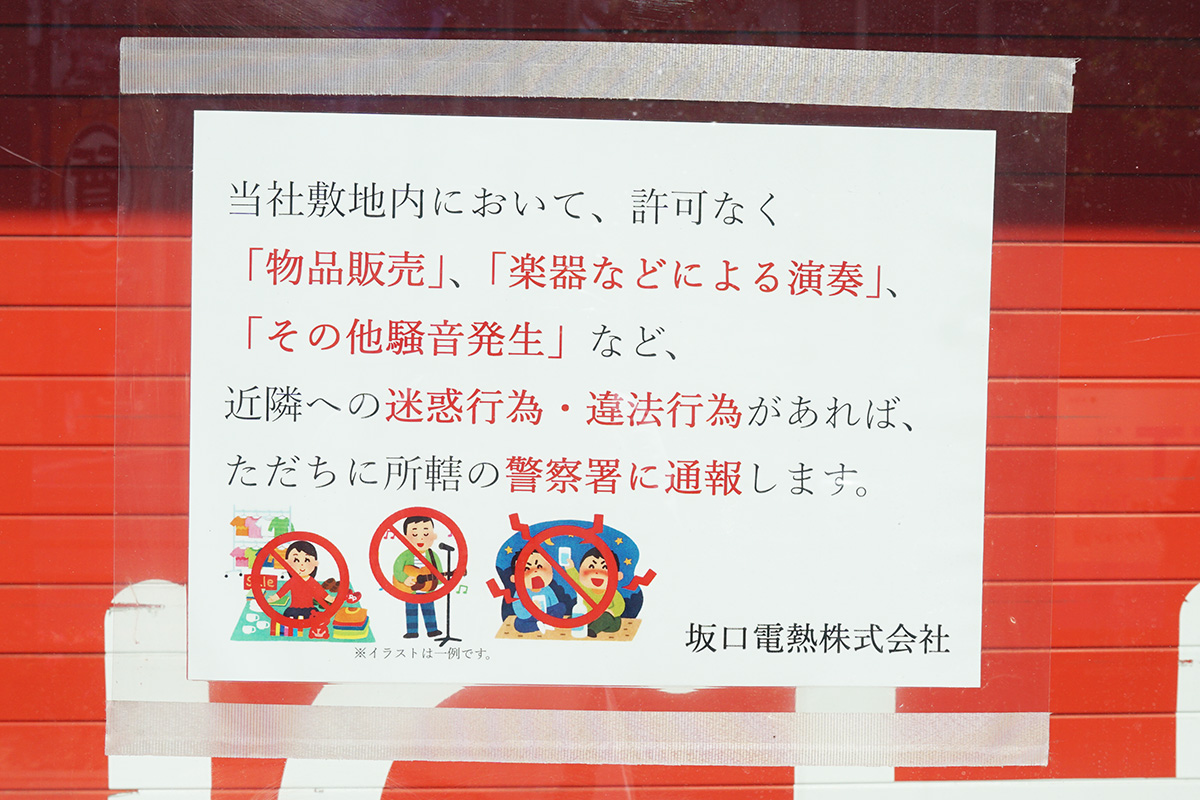 当社敷地内において、許可なく
「物品販売」、「楽器などによる演奏」、
「その他騒音発生」など、
近隣への迷惑行為・違法行為があれば、
ただちに所轄の警察署に通報します。
Sale
※イラストは一例です。
坂口電熱株式会社